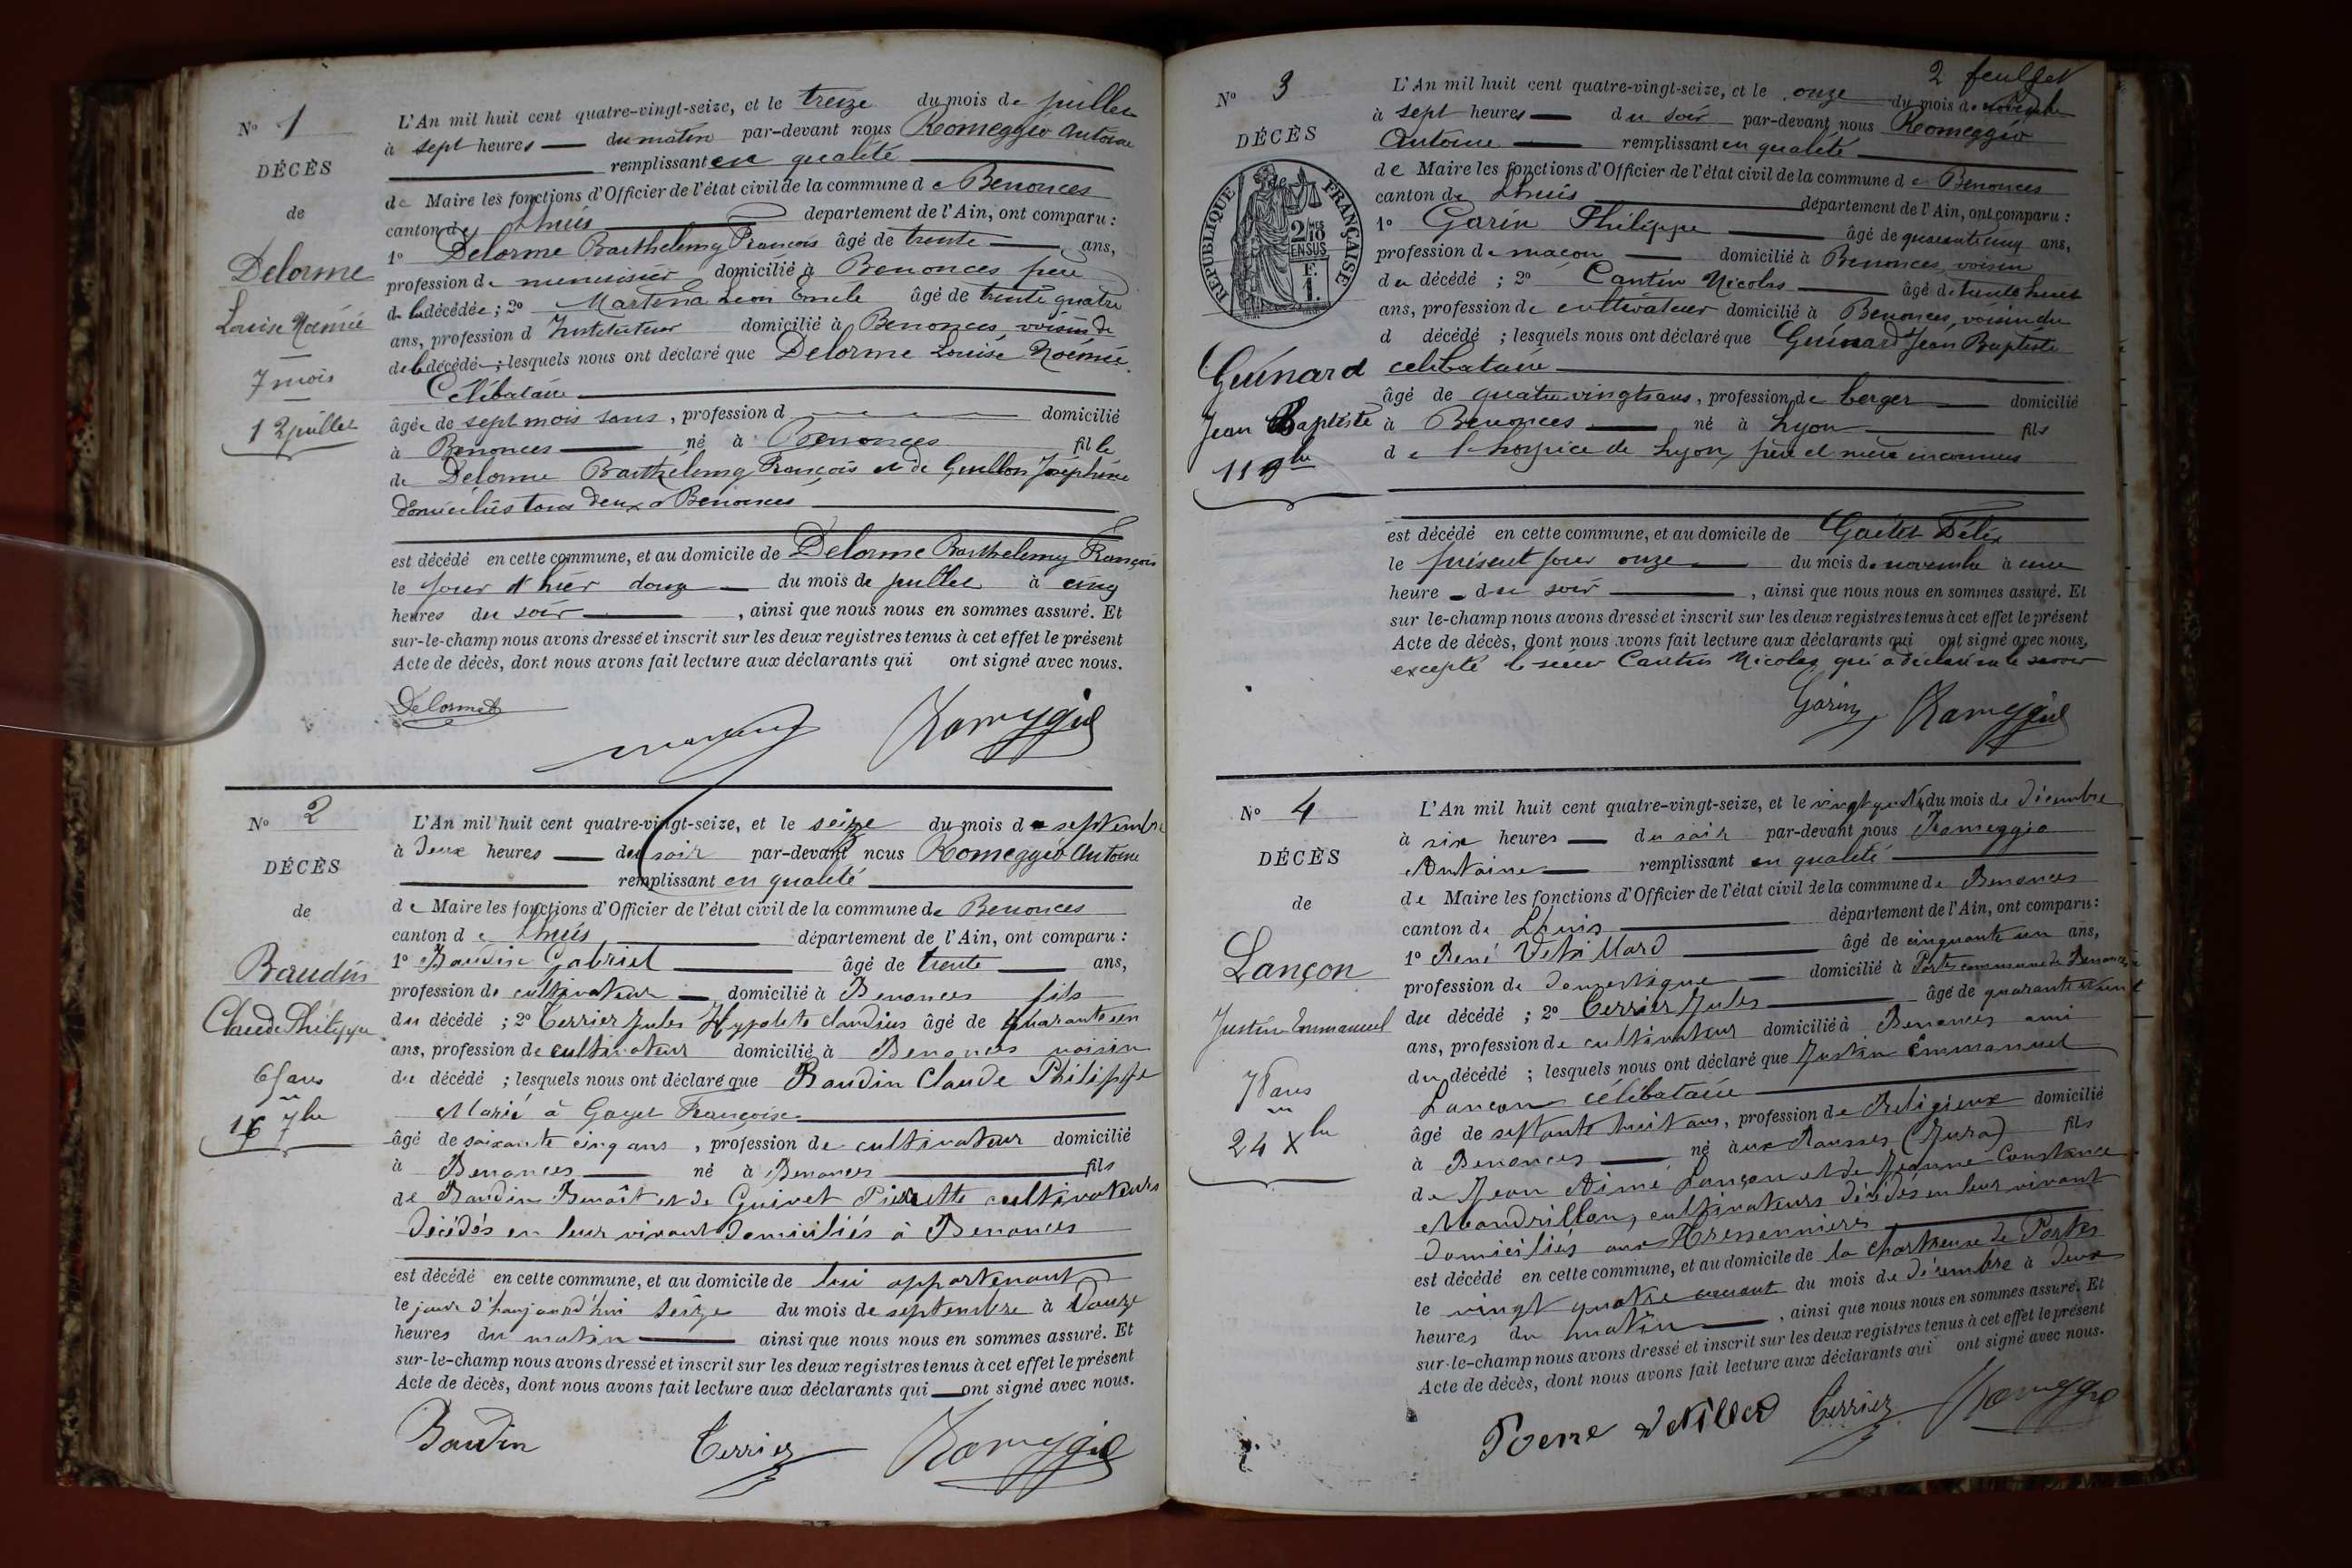 N° 1
DÉCÈS
de
Delorme
Louise Noémie
7 mois
12 juillet
L'An mil huit cent quatre-vingt-seize, et le treize du mois de juillet
à sept heures du matin par-devant nous Romeggio Antoine
remplissant en qualité
de Maire les fonctions d'Officier de l'état civil de la commune de Benonces
canton de Lhuis département de l'Ain, ont comparu :
1° Delorme Barthelemy François âgé de trente ans,
profession de menuisier domicilié à Benonces père
de la décédée ; 2° Léon Emile âgé de trente quatre
ans, profession d Instituteur domicilié à Benonces, voisin de
de la décédée ; lesquels nous ont déclaré que Delorme Louise Noémie
Célibataire
âgée de sept mois sans, profession d domicilié
à Benonces né à Benonces fille
de Delorme Barthelemy François et de Guillon Joséphine
domiciliés tous deux à Benonces
est décédé en cette commune, et au domicile de Delorme Barthelemy François
le jour d'hier douze du mois de juillet à cinq
heures du soir, ainsi que nous nous en sommes assuré. Et
sur-le-champ nous avons dressé et inscrit sur les deux registres tenus à cet effet le présent
Acte de décès, dont nous avons fait lecture aux déclarants qui ont signé avec nous.
Romeggio
N° 2
DÉCÈS
de
Baudin
Claude Philippe
65 ans
16 7bre
L'An mil huit cent quatre-vingt-seize, et le seize du mois de septembre
à deux heures du soir par-devant nous Romeggio Antoine
remplissant en qualité
de Maire les fonctions d'Officier de l'état civil de la commune de Benonces
canton de Lhuis département de l'Ain, ont comparu :
1° Baudin Gabriel âgé de trente ans,
profession de cultivateur domicilié à Benonces fils
du décédé ; 2° Terrier Jules Hypolite Claudius âgé de quarante un
ans, profession de cultivateur domicilié à Benonces voisin
du décédé ; lesquels nous ont déclaré que Baudin Claude Philippe
Marié à Gayet Françoise
âgé de soixante cinq ans, profession de cultivateur domicilié
à Benonces né à Benonces fils
de Baudin Benoît et de Guivet Pierrette cultivateurs
décédés en leur vivant domiciliés à Benonces
est décédé en cette commune, et au domicile de lui appartenant
le jour d'haujourd'hui seize du mois de septembre à Douze
heures du matin ainsi que nous nous en sommes assuré. Et
sur-le-champ nous avons dressé et inscrit sur les deux registres tenus à cet effet le présent
Acte de décès, dont nous avons fait lecture aux déclarants qui ont signé avec nous.
Baudin Terrier Romeggio
2 feuillet
N° 3
DÉCÈS
de
RÉPUBLIQUE FRANÇAISE
2/10
EN SUS
F.
1.
Guinard
Jean Baptiste
11 9bre
L'An mil huit cent quatre-vingt-seize, et le onze du mois de novembre
à sept heures du soir par-devant nous Romeggio
Antoine remplissant en qualité
de Maire les fonctions d'Officier de l'état civil de la commune de Benonces
canton de Lhuis département de l'Ain, ont comparu :
1° Garin Philippe âgé de quarante cinq ans,
profession de maçon domicilié à Benonces, voisin
du décédé ; 2° Cantin Nicolas âgé de trente huit
ans, profession de cultivateur domicilié à Benonces, voisin du
d décédé ; lesquels nous ont déclaré que Guinard Jean Baptiste
célibataire
âgé de quatre vingts ans, profession de berger domicilié
à Benonces né à Lyon fils
de l'hospice de Lyon, père et mère inconnus
est décédé en cette commune, et au domicile de Félix
le présent jour onze du mois de novembre à une
heure du soir, ainsi que nous nous en sommes assuré. Et
sur le-champ nous avons dressé et inscrit sur les deux registres tenus à cet effet le présent
Acte de décès, dont nous avons fait lecture aux déclarants qui ont signé avec nous,
excepté le sieur Cantin Nicolas qui a déclaré ne le savoir
Garin Romeggio
N° 4
DÉCÈS
de
Lançon
Justin Emmanuel
78 ans
24 Xbre
L'An mil huit cent quatre-vingt-seize, et le du mois de décembre
à six heures du soir par-devant nous Romeggio
Antoine remplissant en qualité
de Maire les fonctions d'Officier de l'état civil de la commune de Benonces
canton de Lhuis département de l'Ain, ont comparu :
1° René âgé de cinquante un ans,
profession de domestique domicilié à Portes commune de Benonces
du décédé ; 2° Terrier Jules âgé de quarante et un
ans, profession de cultivateur domicilié à Benonces ami
du décédé ; lesquels nous ont déclaré que Justin Emmanuel
Lançon célibataire
âgé de septante huit ans, profession de Religieux domicilié
à Benonces né aux Rousses (Jura) fils
de Jean Aimé Lançon et de Jeanne Constance
Mandrillon, cultivateurs décédés en leur vivant
domiciliés aux
est décédé en cette commune, et au domicile de la chartreuse de Portes
le vingt quatre courant du mois de décembre à deux
heures du matin, ainsi que nous nous en sommes assuré. Et
sur-le-champ nous avons dressé et inscrit sur les deux registres tenus à cet effet le présent
Acte de décès, dont nous avons fait lecture aux déclarants qui ont signé avec nous.
Terrier Romeggio